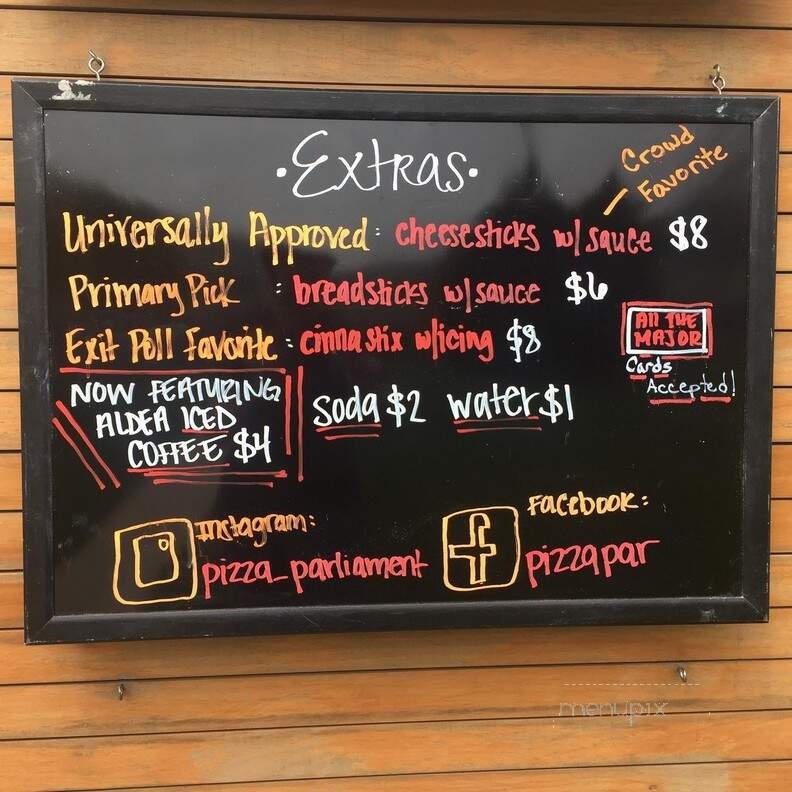 ·Extras·
Crowd
Favorite
Universally Approved: cheesesticks w/ sauce $8
Primary Pick : breadsticks w/ sauce $6
Exit Poll Favorite: cinnastix w/icing $8
All THE
MAJOR
Cards
Accepted!
NOW FEATURING
ALDEA ICED
COFFEE $4
soda $2 water $1
Instagram:
pizza_parliament
Facebook:
pizzapar
menupix